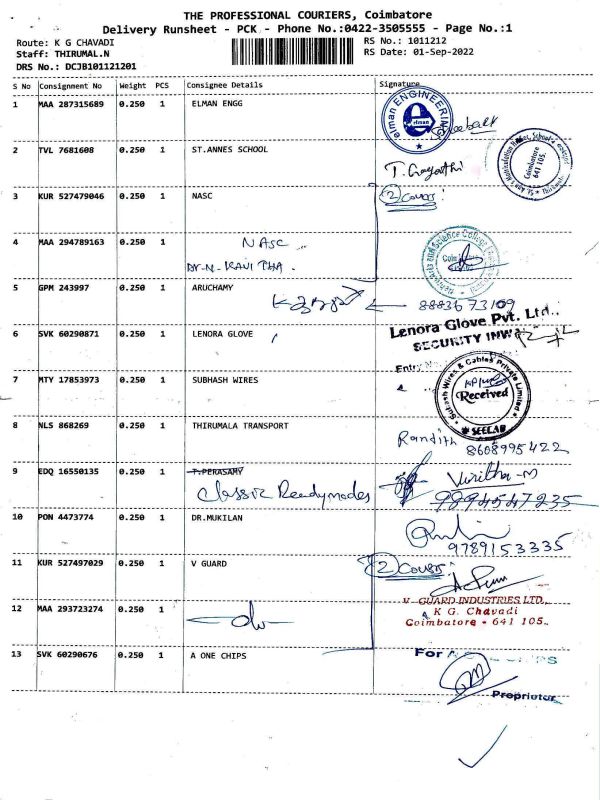 THE PROFESSIONAL COURIERS, Coimbatore
Delivery Runsheet - PCK - Phone No.:0422-3505555 - Page No.:1
Route: K G CHAVADI RS No.: 1011212
Staff: THIRUMAL.N RS Date: 01-Sep-2022
DRS No.: DCJB101121201
S No Consignment No Weight PCS Consignee Details Signature
1 MAA 287315689 0.250 1 ELMAN ENGG
elman ENGINEERING
elman
2 TVL 7681608 0.250 1 ST.ANNES SCHOOL
T. Gayathri
Coimbatore
641 105.
3 KUR 527479046 0.250 1 NASC
2 Covers
4 MAA 294789163 0.250 1 NASC
Dr.N. KAVITHA.
5 GPM 243997 0.250 1 ARUCHAMY
8883673109
6 SVK 60290871 0.250 1 LENORA GLOVE
Lenora Glove Pvt. Ltd.,
SECURITY INW
Entry
7 MTY 17853973 0.250 1 SUBHASH WIRES
Subash Wires & Cables Private Limited
Received
8 NLS 868269 0.250 1 THIRUMALA TRANSPORT
Randith
8608995422
9 EDQ 16550135 0.250 1 T.PERASAMY
Classic Readymades
9894547235
10 PON 4473774 0.250 1 DR.MUKILAN
9789153335
11 KUR 527497029 0.250 1 V GUARD
2 Covers
V GUARD INDUSTRIES LTD.,
K G. Chavadi
Coimbatore - 641 105.
12 MAA 293723274 0.250 1
13 SVK 60290676 0.250 1 A ONE CHIPS
For
Proprietor